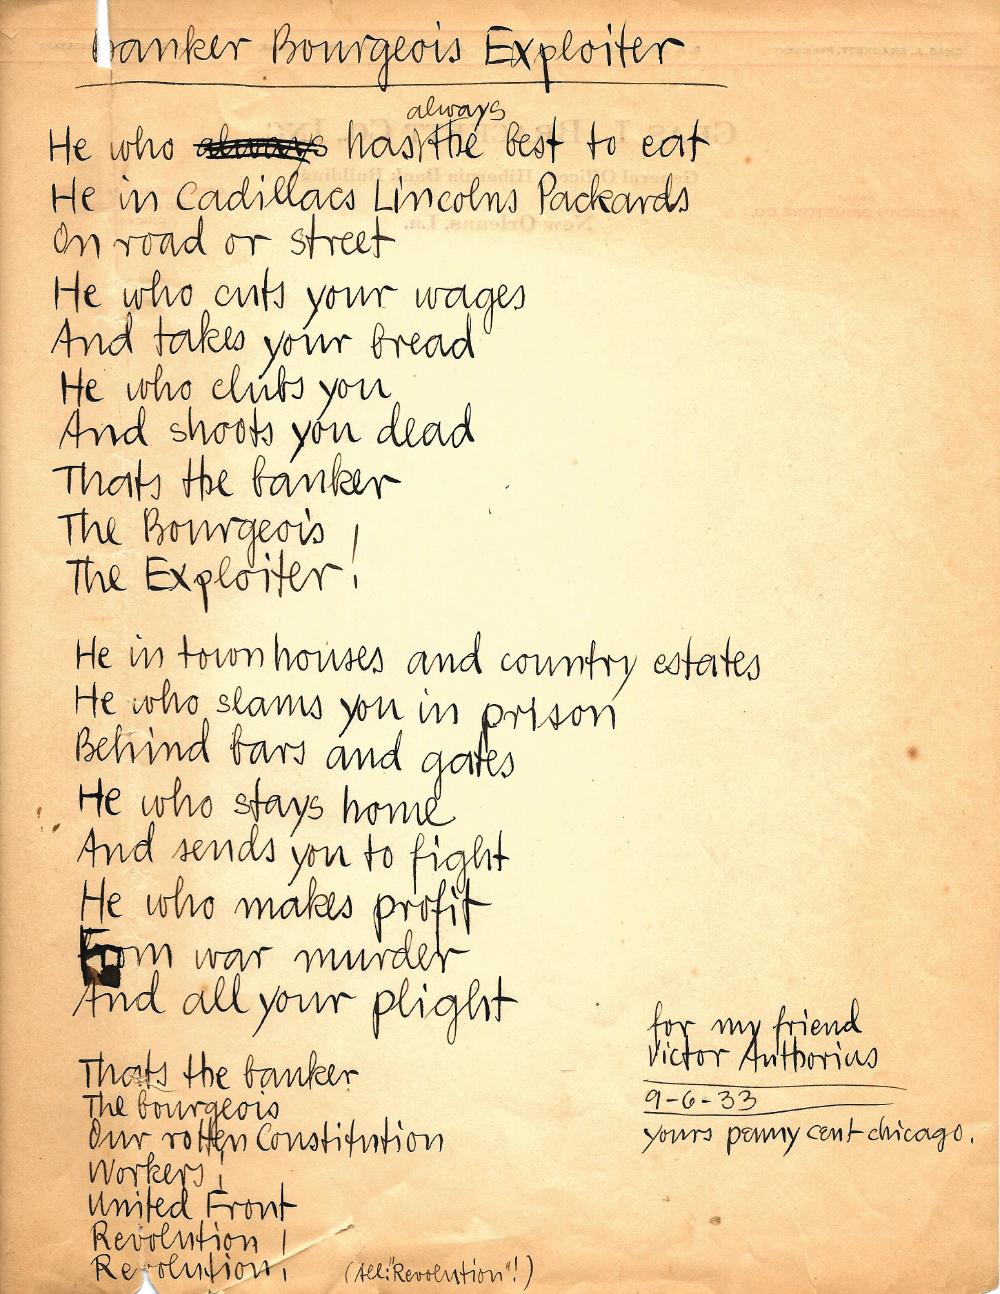 Banker Bourgeois Exploiter
always
He who always has the best to eat
He in Cadillacs Lincolns Packards
On road or street
He who cuts your wages
And takes your bread
He who clubs you
And shoots you dead
Thats the banker
The Bourgeois
The Exploiter!
He in townhouses and country estates
He who slams you in prison
Behind bars and gates
He who stays home
And sends you to fight
He who makes profit
From war murder
And all your plight
Thats the banker
The bourgeois
Our rotten Constitution
Workers!
United Front
Revolution!
Revolution!
(All: "Revolution"!)
for my friend
Victor Anthorius
9-6-33
yours penny cent chicago.
General Offices, Hibernia Bank Building
New Orleans, La.